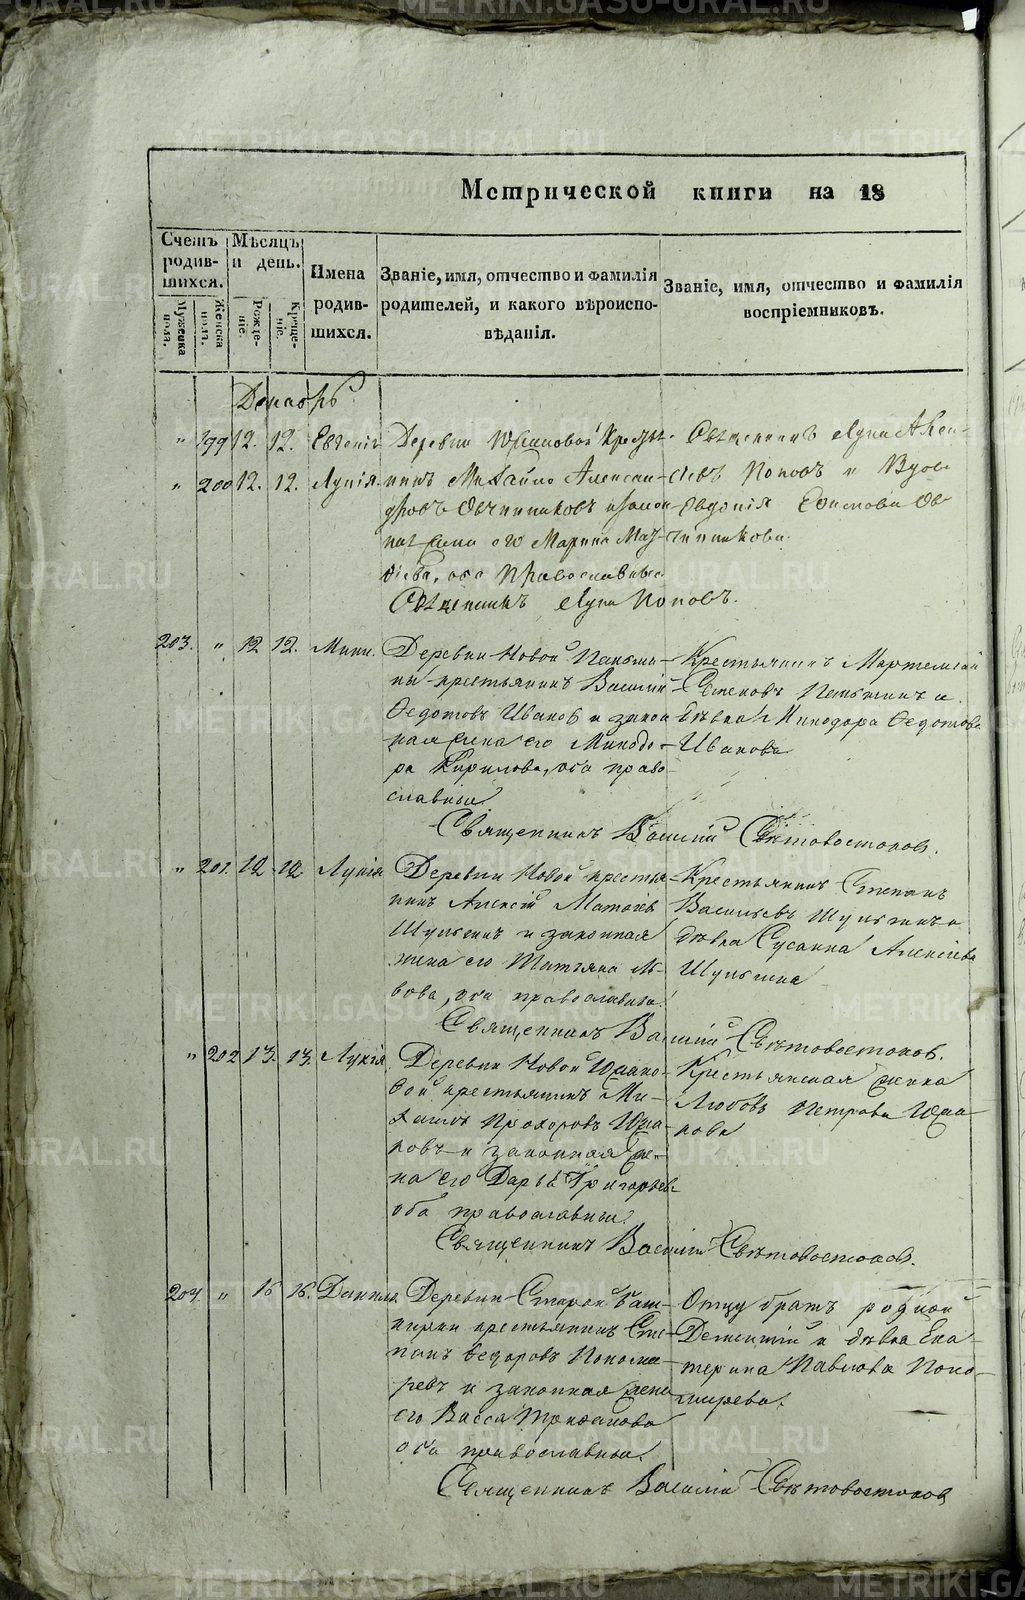 METRIKI.GASO-URAL.RU
Метрической книги на 18
Счетъ родив-шихся.
Мужеска пола.
Женска пола.
Мѣсяцъ и день.
Рожде-ніе.
Креще-ніе.
Имена родив-шихся.
Званіе, имя, отчество и фамилія родителей, и какого вѣроиспо-вѣданія.
Званіе, имя, отчество и фамилія воспріемниковъ.
Декабрь
" 199 12. 12. Евгенія
" 200 12. 12. Лукія.
Деревни Крестья-
нинъ Михайло Алексан-
дровъ Овчинниковъ и закон
ная жена его Марина Мат-
ѳіева, оба Православные
Священникъ Лука Поповъ.
Священникъ Лука
Поповъ и Вдова
Евдокія Ефимова Ов
чинникова.
203. " 12 12. Мина.
Деревни Новой Паньши-
ны крестьянинъ Василій
Ѳедотовъ Ивановъ и закон
ная жена его Минодо-
ра Кирилова, оба право-
славные
Крестьянинъ
Семеновъ и
дѣвка Минодора Ѳедотова
Иванова
Священникъ Василій Свѣтовостоковъ.
" 201. 12. 12. Лукія
Деревни Новой крестья
нинъ Алексѣй
Шульгинъ и законная
жена его Татьяна Ль-
вова, оба православные.
Крестьянинъ Степанъ
Васильевъ Шульгинъ и
дѣвка Сусанна Алексѣева
Шульгина
Священникъ Василій Свѣтовостоковъ.
" 202 13. 13. Лукія
Деревни Новой Юшко-
вой крестьянинъ Ми-
хаилъ Прохоровъ Юша-
ковъ и законная же-
на его Дарья Григорьева
оба православные.
Крестьянская жена
Любовь Петрова Юша-
кова
Священникъ Василій Свѣтовостоковъ.
204. " 16 16. Даніилъ.
Деревни Старой Баш-
кирки крестьянинъ Сте-
панъ Ѳедоровъ Понома-
ревъ и законная жена
его Васса
оба православные.
Отцу братъ родной
Дементій и дѣвка Ека-
терина Павлова Поно-
марева.
Священникъ Василій Свѣтовостоковъ